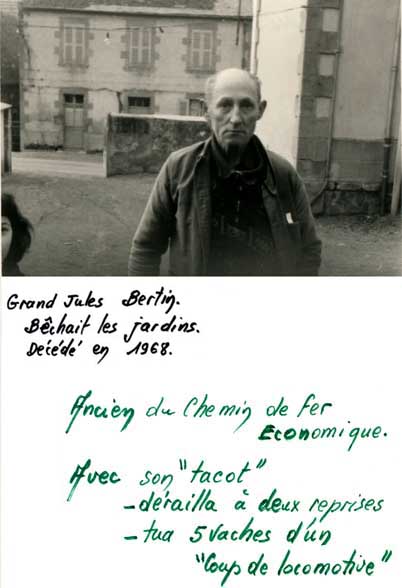 Grand Jules Bertin.
Bêchait les jardins.
Décédé en 1968.
Ancien du Chemin de Fer
Economique.
Avec son "tacot"
- dérailla à deux reprises
- tua 5 vaches d'un
"Coup de locomotive"